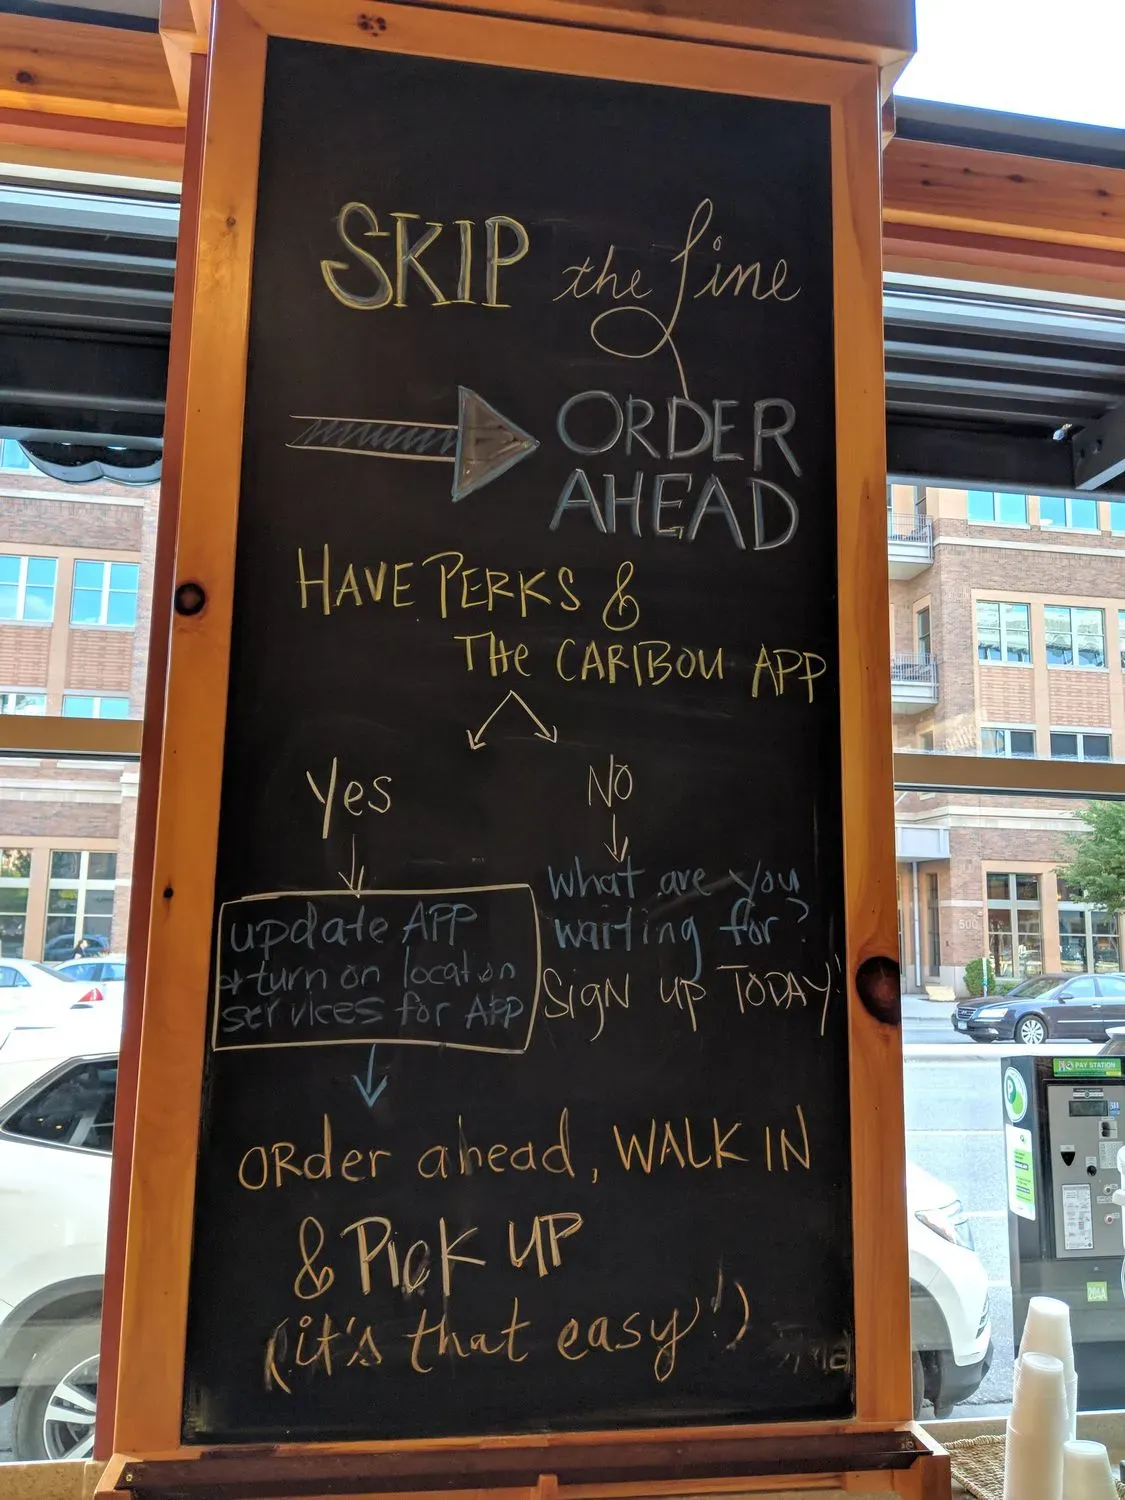 SKIP the line
ORDER
AHEAD
HAVE PERKS &
THE CARIBOU APP
Yes
NO
update APP
+ turn on location
services for App
what are you
waiting for?
SIGN UP TODAY!
ORder ahead, WALK IN
& PICK UP
(it's that easy!)
PAY STATION
500